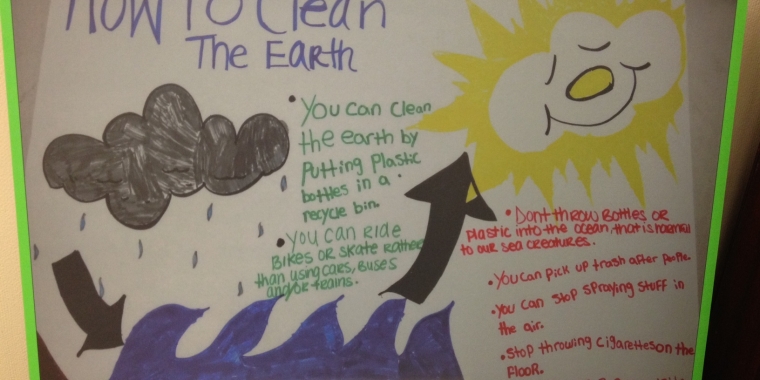 How To Clean
The Earth
• You can clean
the earth by
Putting Plastic
bottles in a
recycle bin.
• You can Ride
Bikes or skate Rather
than using cars, Buses
and/or trains.
• Dont throw Bottles or
plastic into the ocean, that is harmful
to our sea creatures.
• You can pick up trash after people.
• You can stop spraying stuff in
the air.
• Stop throwing cigarettes on the
floor.